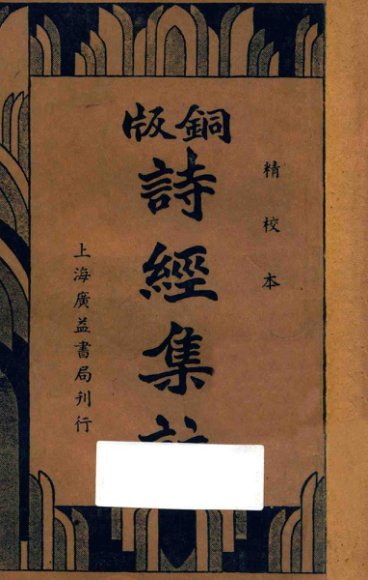 精校本
銅版
詩經集
上海廣益書局刊行